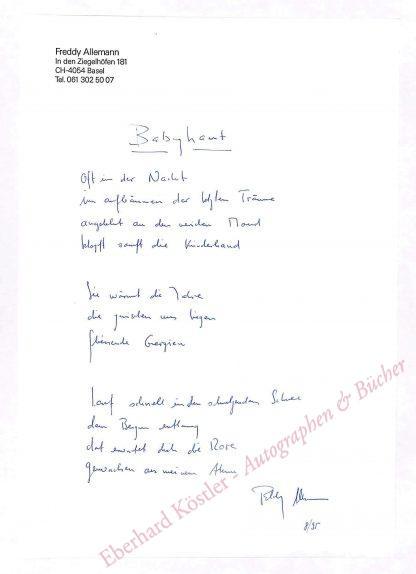 Freddy Allemann
In den Ziegelhöfen 181
CH-4054 Basel
Tel. 061 302 50 07
Babyhaut
Oft in der Nacht
im aufbäumen der letzten Träume
angelehnt an den weichen Mond
klopft sanft die Kinderhand
Sie wärmt die Jahre
die zwischen uns liegen
Georgien
Lauf schnell in den Schnee
dem Bogen entlang
dort erwartet dich die Rose
gewachsen aus meinem Atem
8/95
Eberhard Köstler - Autographen & Bücher